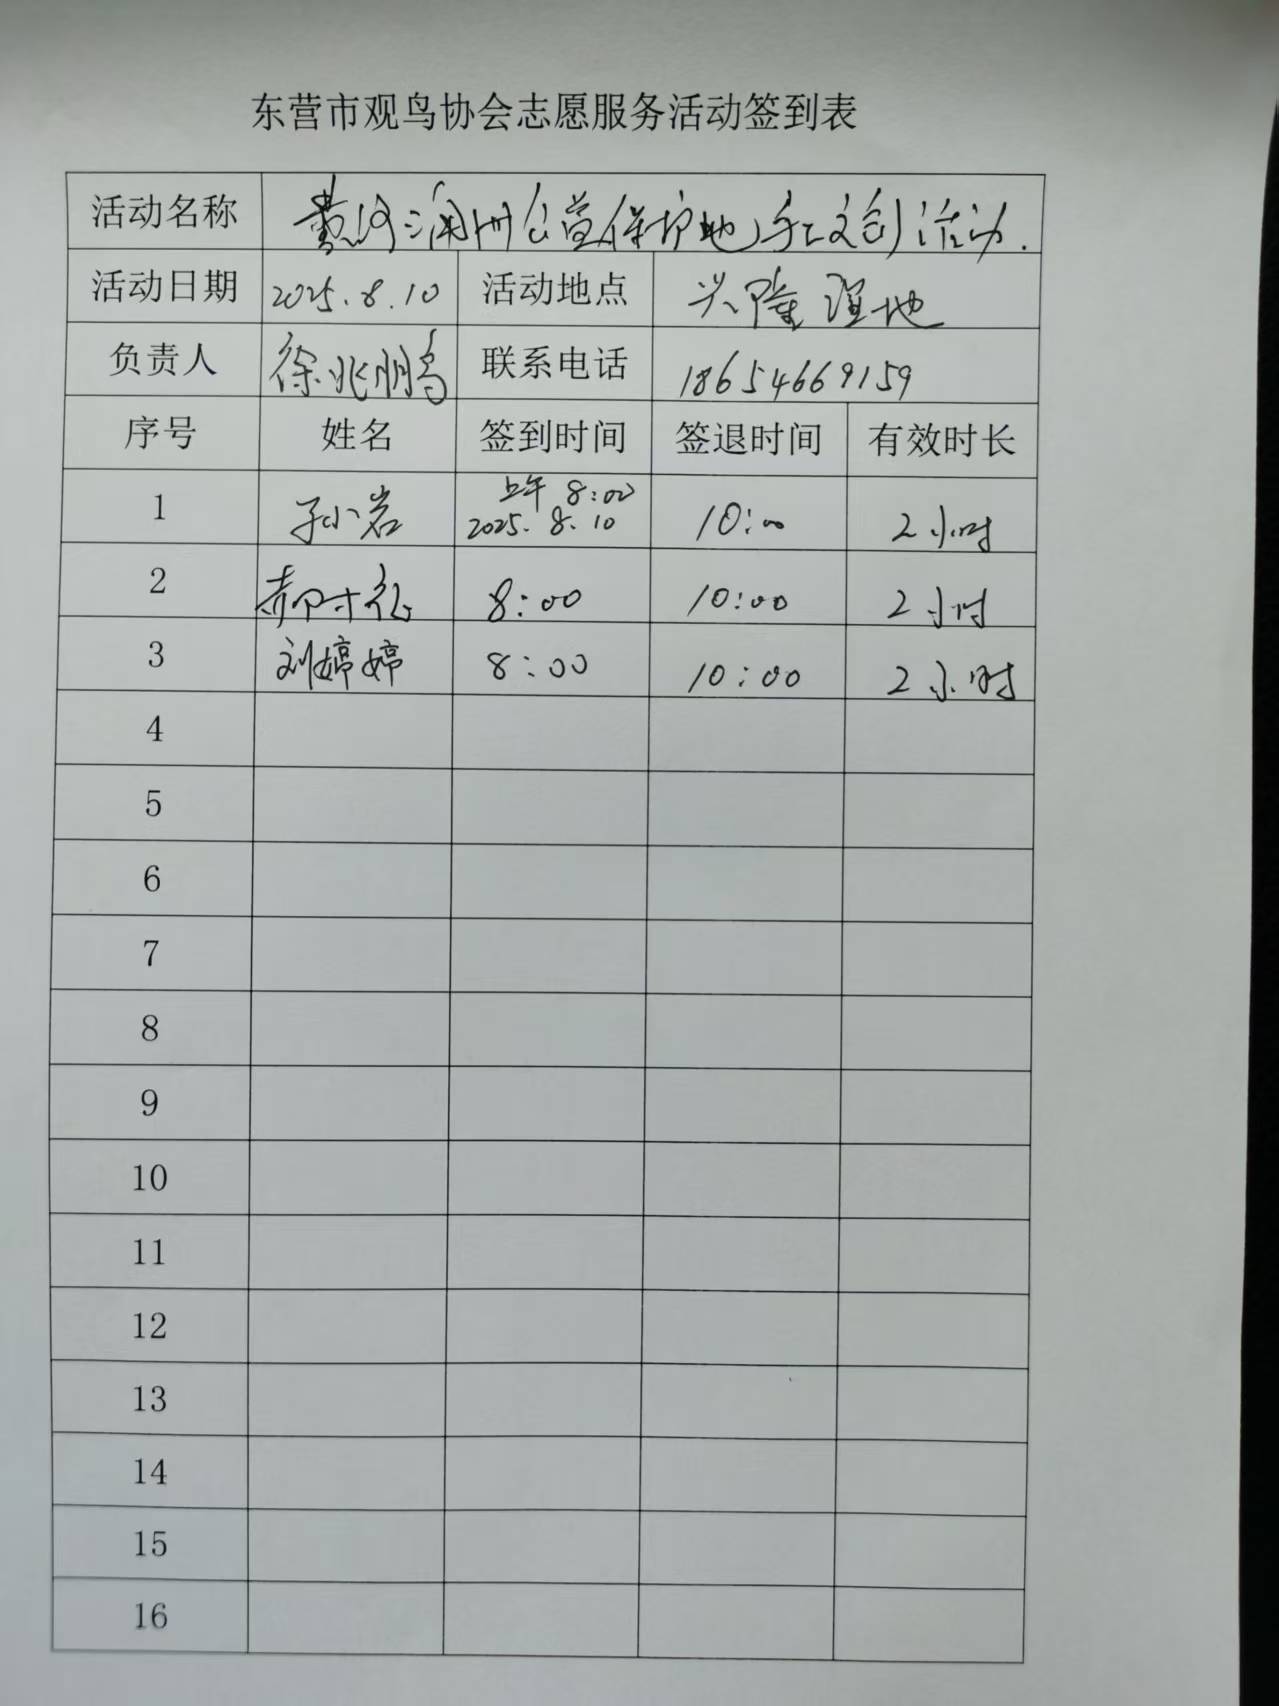 东营市观鸟协会志愿服务活动签到表
活动名称 黄河三角洲公益保护地手工文创活动.
活动日期 2025.8.10 活动地点 兴隆湿地
负责人 徐兆鹏 联系电话 18654669159
序号 姓名 签到时间 签退时间 有效时长
1 孙小岩 上午 8:00 2025.8.10 10:00 2小时
2 8:00 10:00 2小时
3 刘婷婷 8:00 10:00 2小时
4
5
6
7
8
9
10
11
12
13
14
15
16